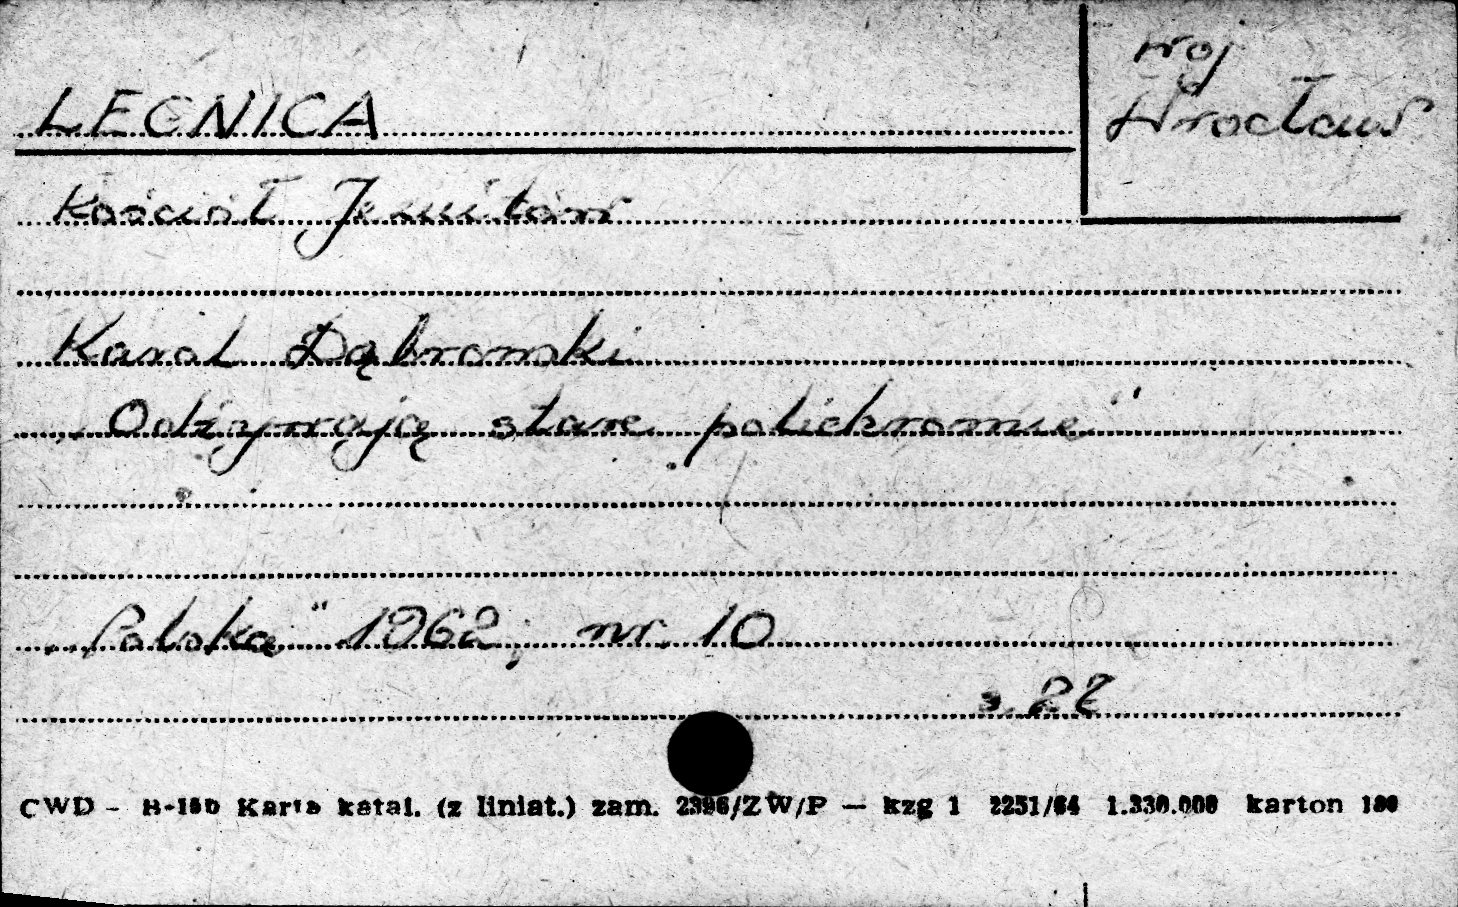 woj
Wrocław
LEGNICA
Kościół Jezuitów
Karol Dąbrowski
„Odżywają stare polichromie"
„Polska" 1962, nr. 10
s. 22
CWD - B-160 Karta katal. (z liniat.) zam. 2396/ZW/P — kzg 1 2251/64 1.330.000 karton 180